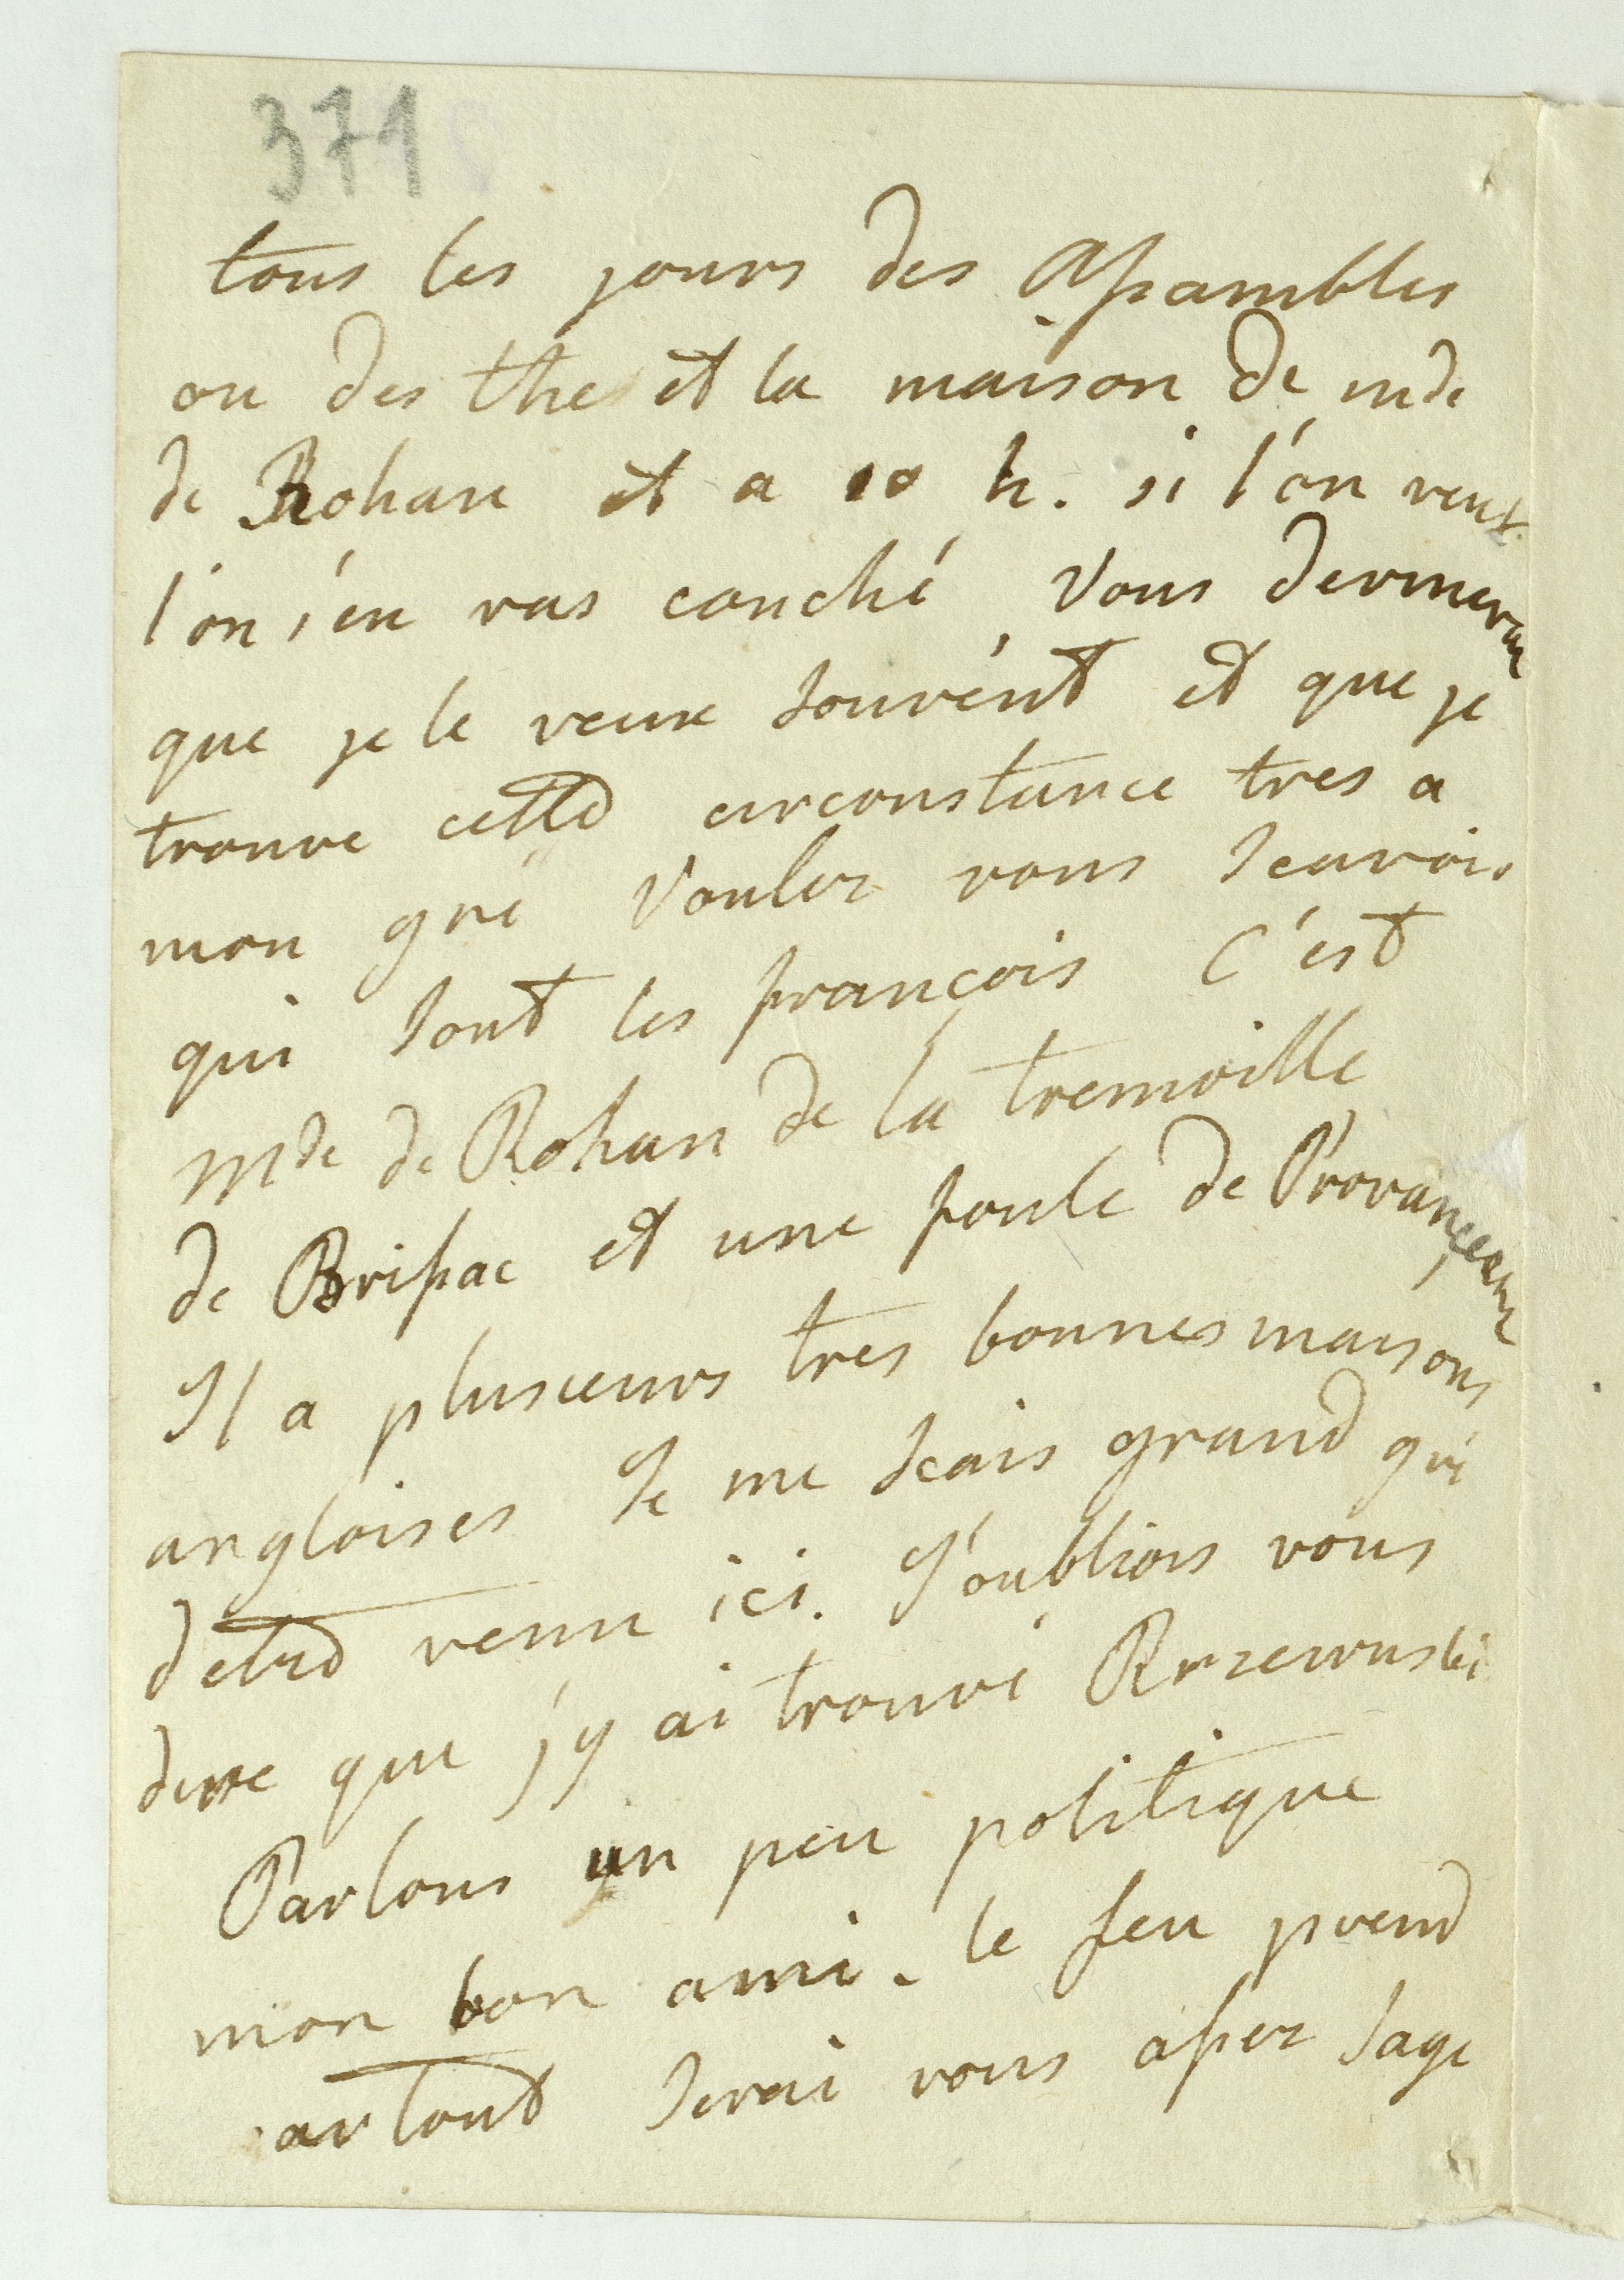 371
tous les jours des assambles
ou des the et la maison de mde
de Rohan et a 10 h. si l'on veut
l'on s'en vas couché, Vous devineres
que je le veux souvént et que je
trouve cette circonstance tres a
mon gré Voulez vous scavois
qui sont les françois C'est
Mde de Rohan de la tremoille
de Brissac et une foule de Provançeaux
Il a plusieurs tres bonnes maisons
angloises Je me scais grand gré
detre venu ici. J'oubliois vous
dire que j'y ai trouvé Rrzewuski
Parlons un peu politique
mon bon ami. le feu prend
artout serai vous assez sage